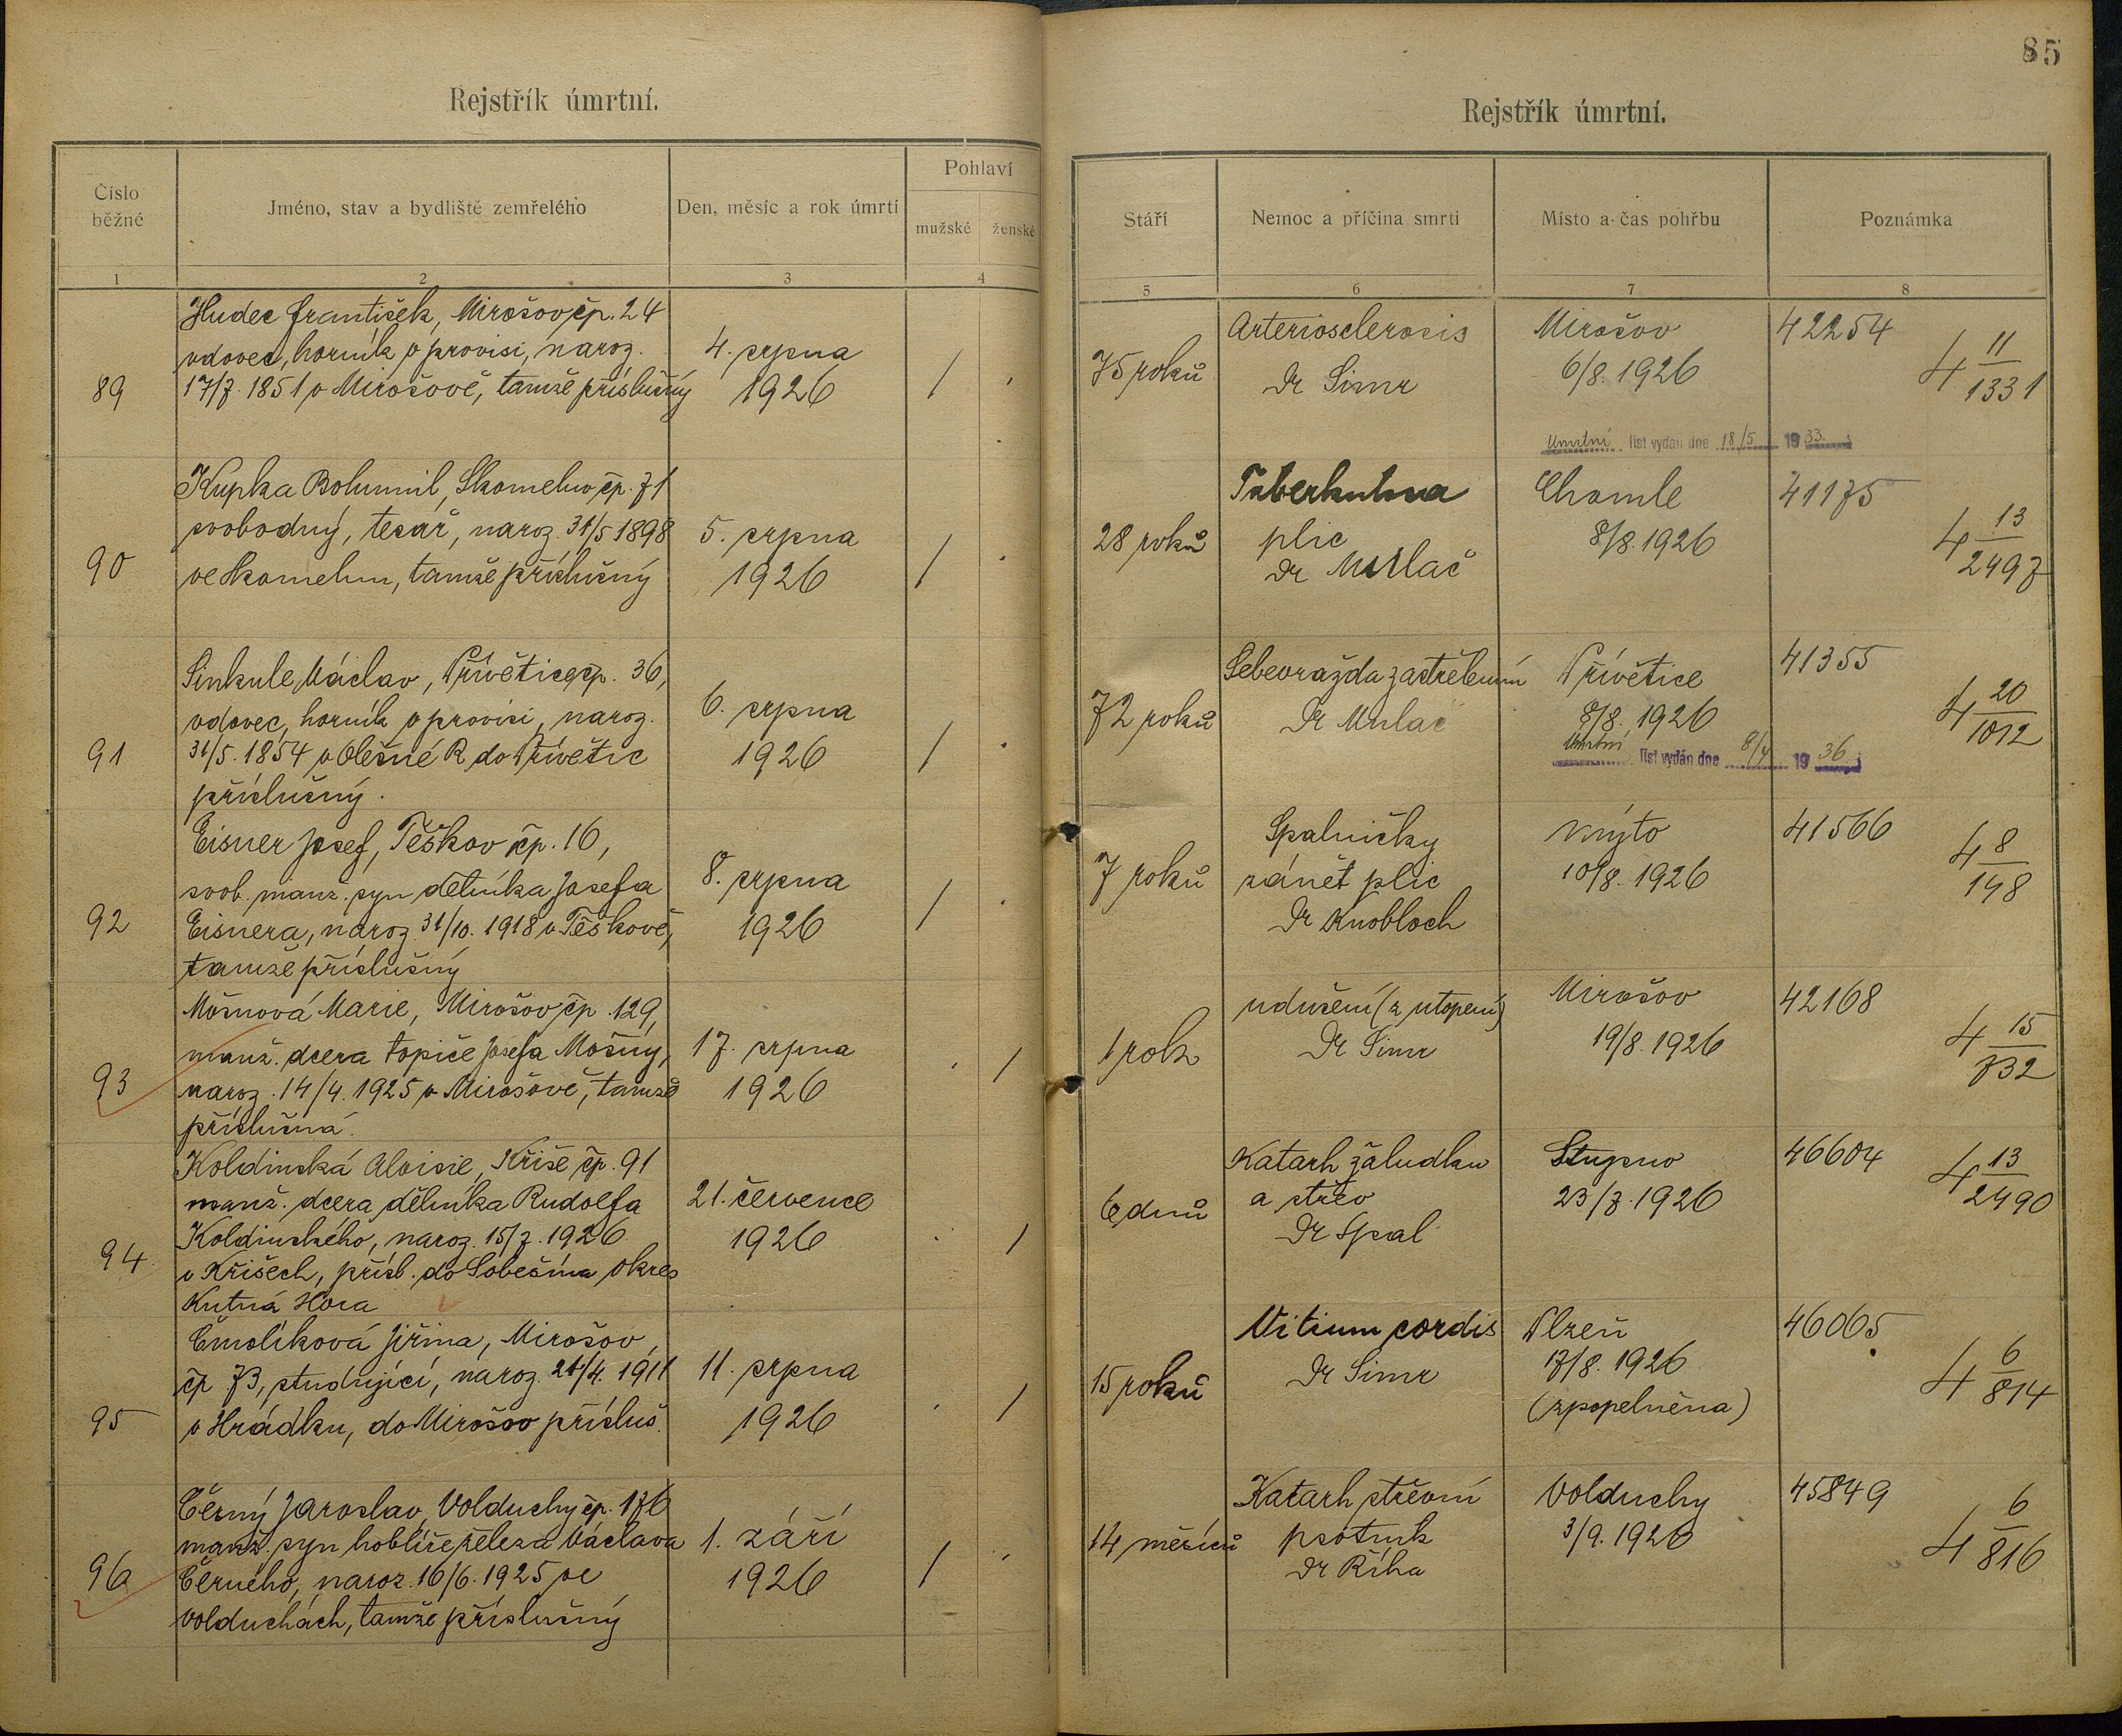 85
Rejstřík úmrtní.
Číslo běžné
Jméno, stav a bydliště zemřelého
Den, měsíc a rok úmrtí
Pohlaví
mužské
ženské
1
2
3
4
Hudec František, Mirošov čp. 24
vdovec, horník v provisi, naroz.
17/7. 1851 v Mirošově, tamže příslušný
89
4. srpna
1926
/
Kupka Bohumil, Skomelno čp. 71
svobodný, tesař, naroz. 31/5 1898
ve Skomelnu, tamže příslušný
90
5. srpna
1926
/
Sinkule Václav, Přívětice čp. 36,
vdovec, horník v provisi, naroz.
31/5. 1854 v Olešné R do Přívětic
příslušný.
91
6. srpna
1926
/
Eisner Josef, Těškov čp. 16,
svob. manž. syn dělníka Josefa
Eisnera, naroz. 31/10. 1918 v Těškově,
tamže příslušný
92
8. srpna
1926
/
Mošnová Marie, Mirošov čp. 129,
manž. dcera topiče Josefa Mošny,
naroz. 14/4. 1925 v Mirošově, tamže
příslušná.
93
17. srpna
1926
/
Koldinská Aloisie, Kříše čp. 91
manž. dcera dělníka Rudolfa
Koldinského, naroz. 15/7. 1926
v Kříšech, přísl. do Soběšína okres
Kutná Hora
94.
21. července
1926
/
Čmolíková Jiřina, Mirošov
čp 73, studující, naroz. 21/4. 1911
v Hrádku, do Mirošov přísluš.
95
11. srpna
1926
/
Černý Jaroslav, Volduchy čp. 176
manž. syn hoblíře železa Václava
Černého, naroz. 16/6. 1925 ve
Volduchách, tamže příslušný
96
1. září
1926
/
Rejstřík úmrtní.
Stáří
Nemoc a příčina smrti
Místo a čas pohřbu
Poznámka
5
6
7
8
75 roků
Arteriosclerosis
Dr Simr
Mirošov
6/8. 1926
42254
4 11/1331
Úmrtní list vydán dne 18/5 1933.
28 roků
Tuberkulosa
plic
Dr Mulač
Chomle
8/8. 1926
41175
4 13/2497
72 roků
Sebevražda zastřelením
Dr Mulač
Přívětice
8/8. 1926
41355
4 20/1012
Úmrtní list vydán dne 8/4 1936
7 roků
Spalničky
zánět plic
Dr Knobloch
Mýto
10/8. 1926
41566
4 8/148
1 rok
udušení (z utopení)
Dr Simr
Mirošov
19/8. 1926
42168
4 15/732
6 dnů
Katarh žaludku
a střev
Dr Spal
Stupno
23/7. 1926
46604
4 13/2490
15 roků
Vitium cordis
Dr Simr
Plzeň
17/8. 1926
(zpopelněna)
46065
4 6/814
14 měsíců
Katarh střevní
psotník
Dr Říha
Volduchy
3/9. 1926
45849
4 6/816